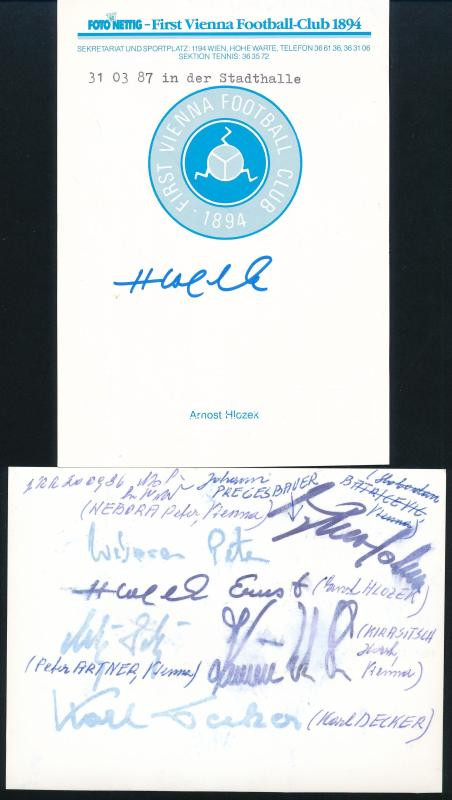 FOTO NETTIG - First Vienna Football-Club 1894
SEKRETARIAT UND SPORTPLATZ: 1194 WIEN, HOHE WARTE, TELEFON 36 61 36, 36 31 06
SEKTION TENNIS: 36 35 72
31 03 87 in der Stadthalle
FIRST VIENNA FOOTBALL CLUB
· 1894 ·
Hlozek
Arnost Hlozek
Johann
PREGESBAUER
(NEBORA Peter, Vienna)
Vienna)
Peter
Hlozek Ernst (Ernst HLOZEK)
(KIRASITSCH
Vienna)
(Peter ARTNER, Vienna)
Karl Decker (Karl DECKER)